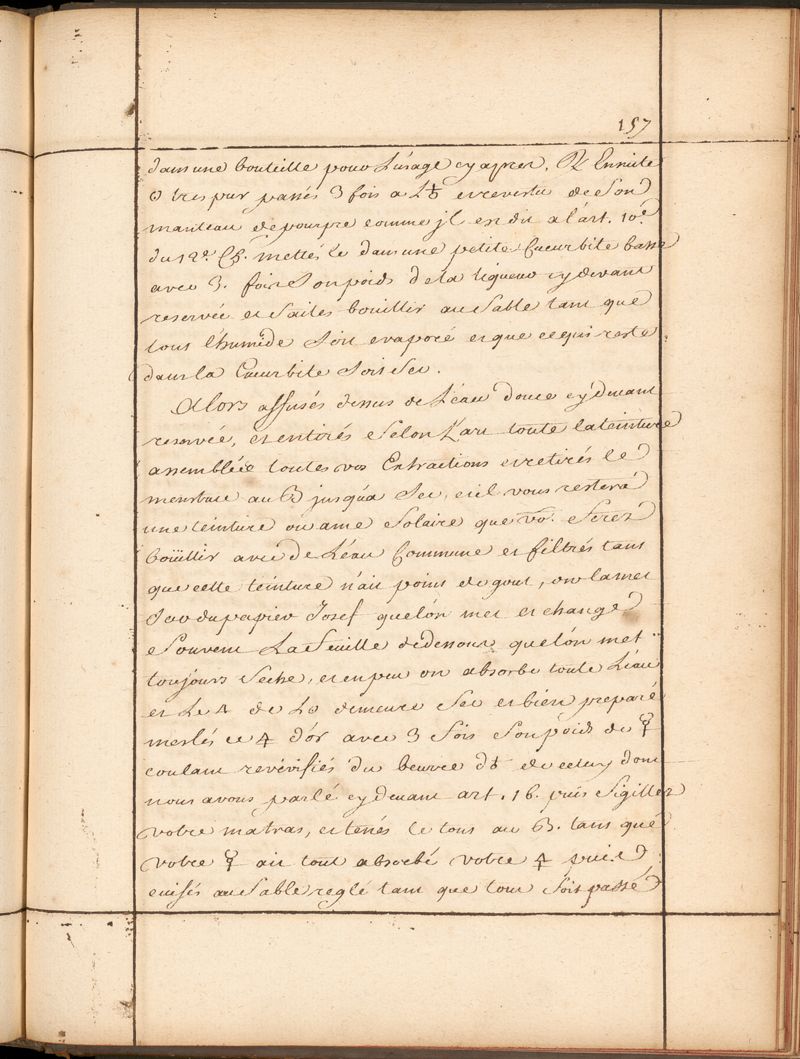 157
dans une bouteille pour Lusage cy apres. ℞ Ensuite
☉ tres pur passés 3 fois a L♁ et revertu de Son
manteau de pourpre comme jl est dit a l'art. 10.e
du 12.e Ch. mettés le dans une petite Cucurbite basse
avec 3. fois Son poids de la liqueur cy devant
reservée et faites bouillir au Sable tant que
tout l'humide Soit evaporé et que ce qui reste
dans la Cucurbite Soit Sec.
Alors affusés dessus de L'eau douce cy devant
reservée, et entirés Selon L'art toute la teinture
assemblée toutes vos Extractions et retirés le
menstrue au B jusqu'a Sec, et il vous restera
une teinture ou ame Solaire que vo. Ferez
boüillir avec de L'eau Commune et filtrés tant
que cette teinture n'ait point de gout, on la met
Sur du papier Josef que lón met et change
Souvent La feuille de dessous que lón met
toujours Seche, et en peu on absorbe toute L'eau
et Le 🜍 de L☉ demeure Sec et bien preparé
meslés ce 🜍 d'or avec 3 fois Son poids de ☿
coulant revivifiés du beurre d♁ de celuy dont
nous avons parlé cy devant art. 16. puis Sigillez
votre matras, et tenés le tout au B. tant que
votre ☿ ait tout absorbé votre 🜍 puis
cuisés au Sable reglé tant que tout Soit passé